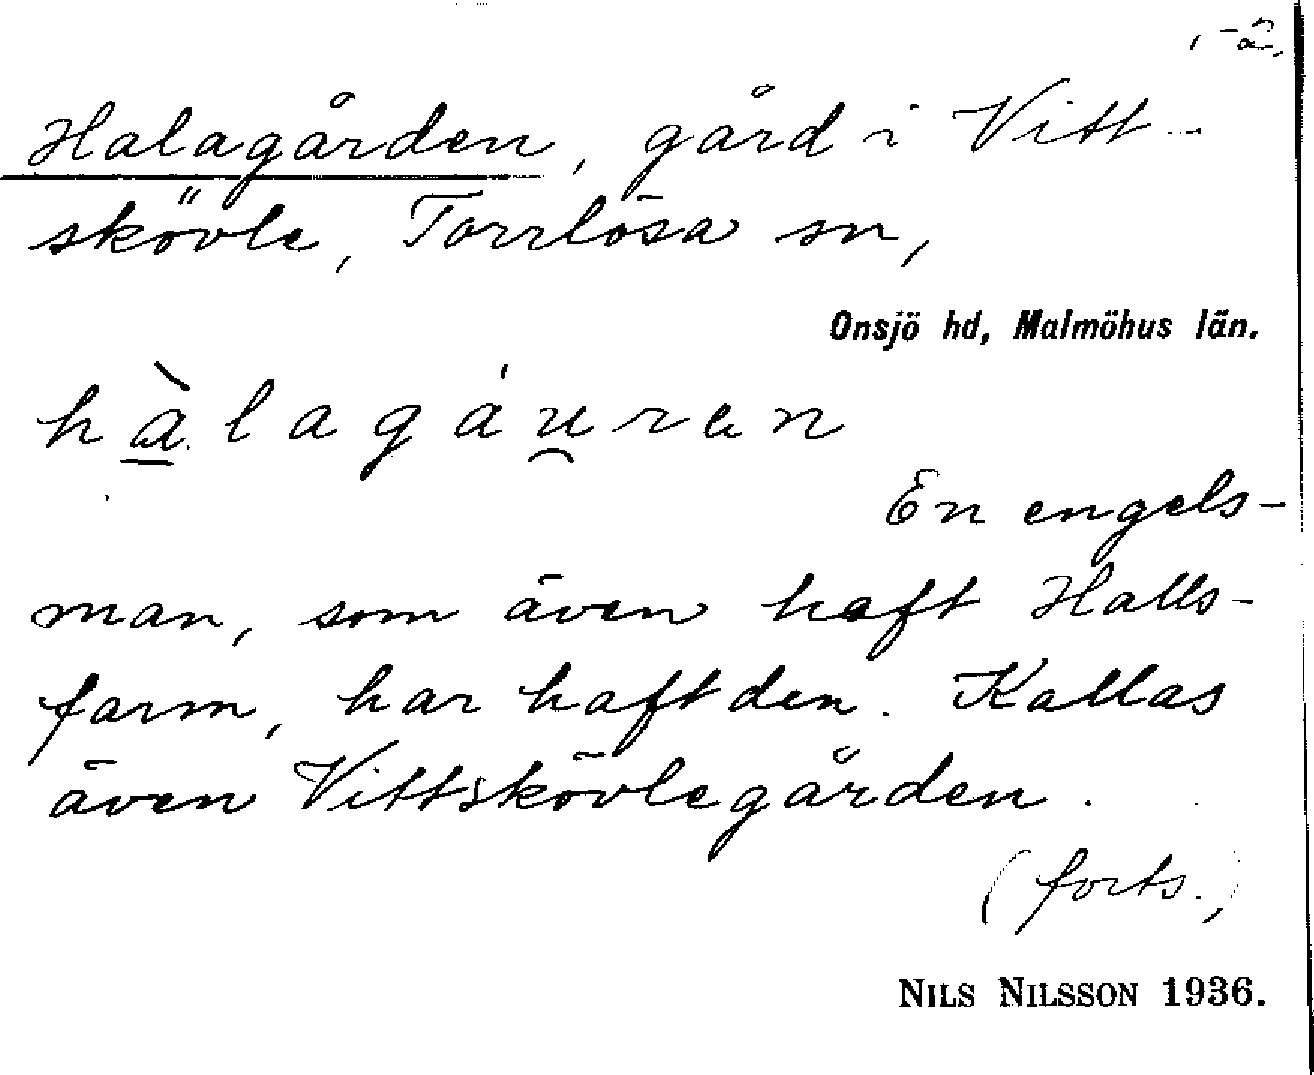 Halagården, gård i Vitt-
skövle, Torrlösa sn,
Onsjö hd, Malmöhus län.
hàlagáu̯ren
En engels-
man, som även haft Halls-
farm, har haft den. Kallas
även Vittskövlegården.
(forts.)
NILS NILSSON 1936.